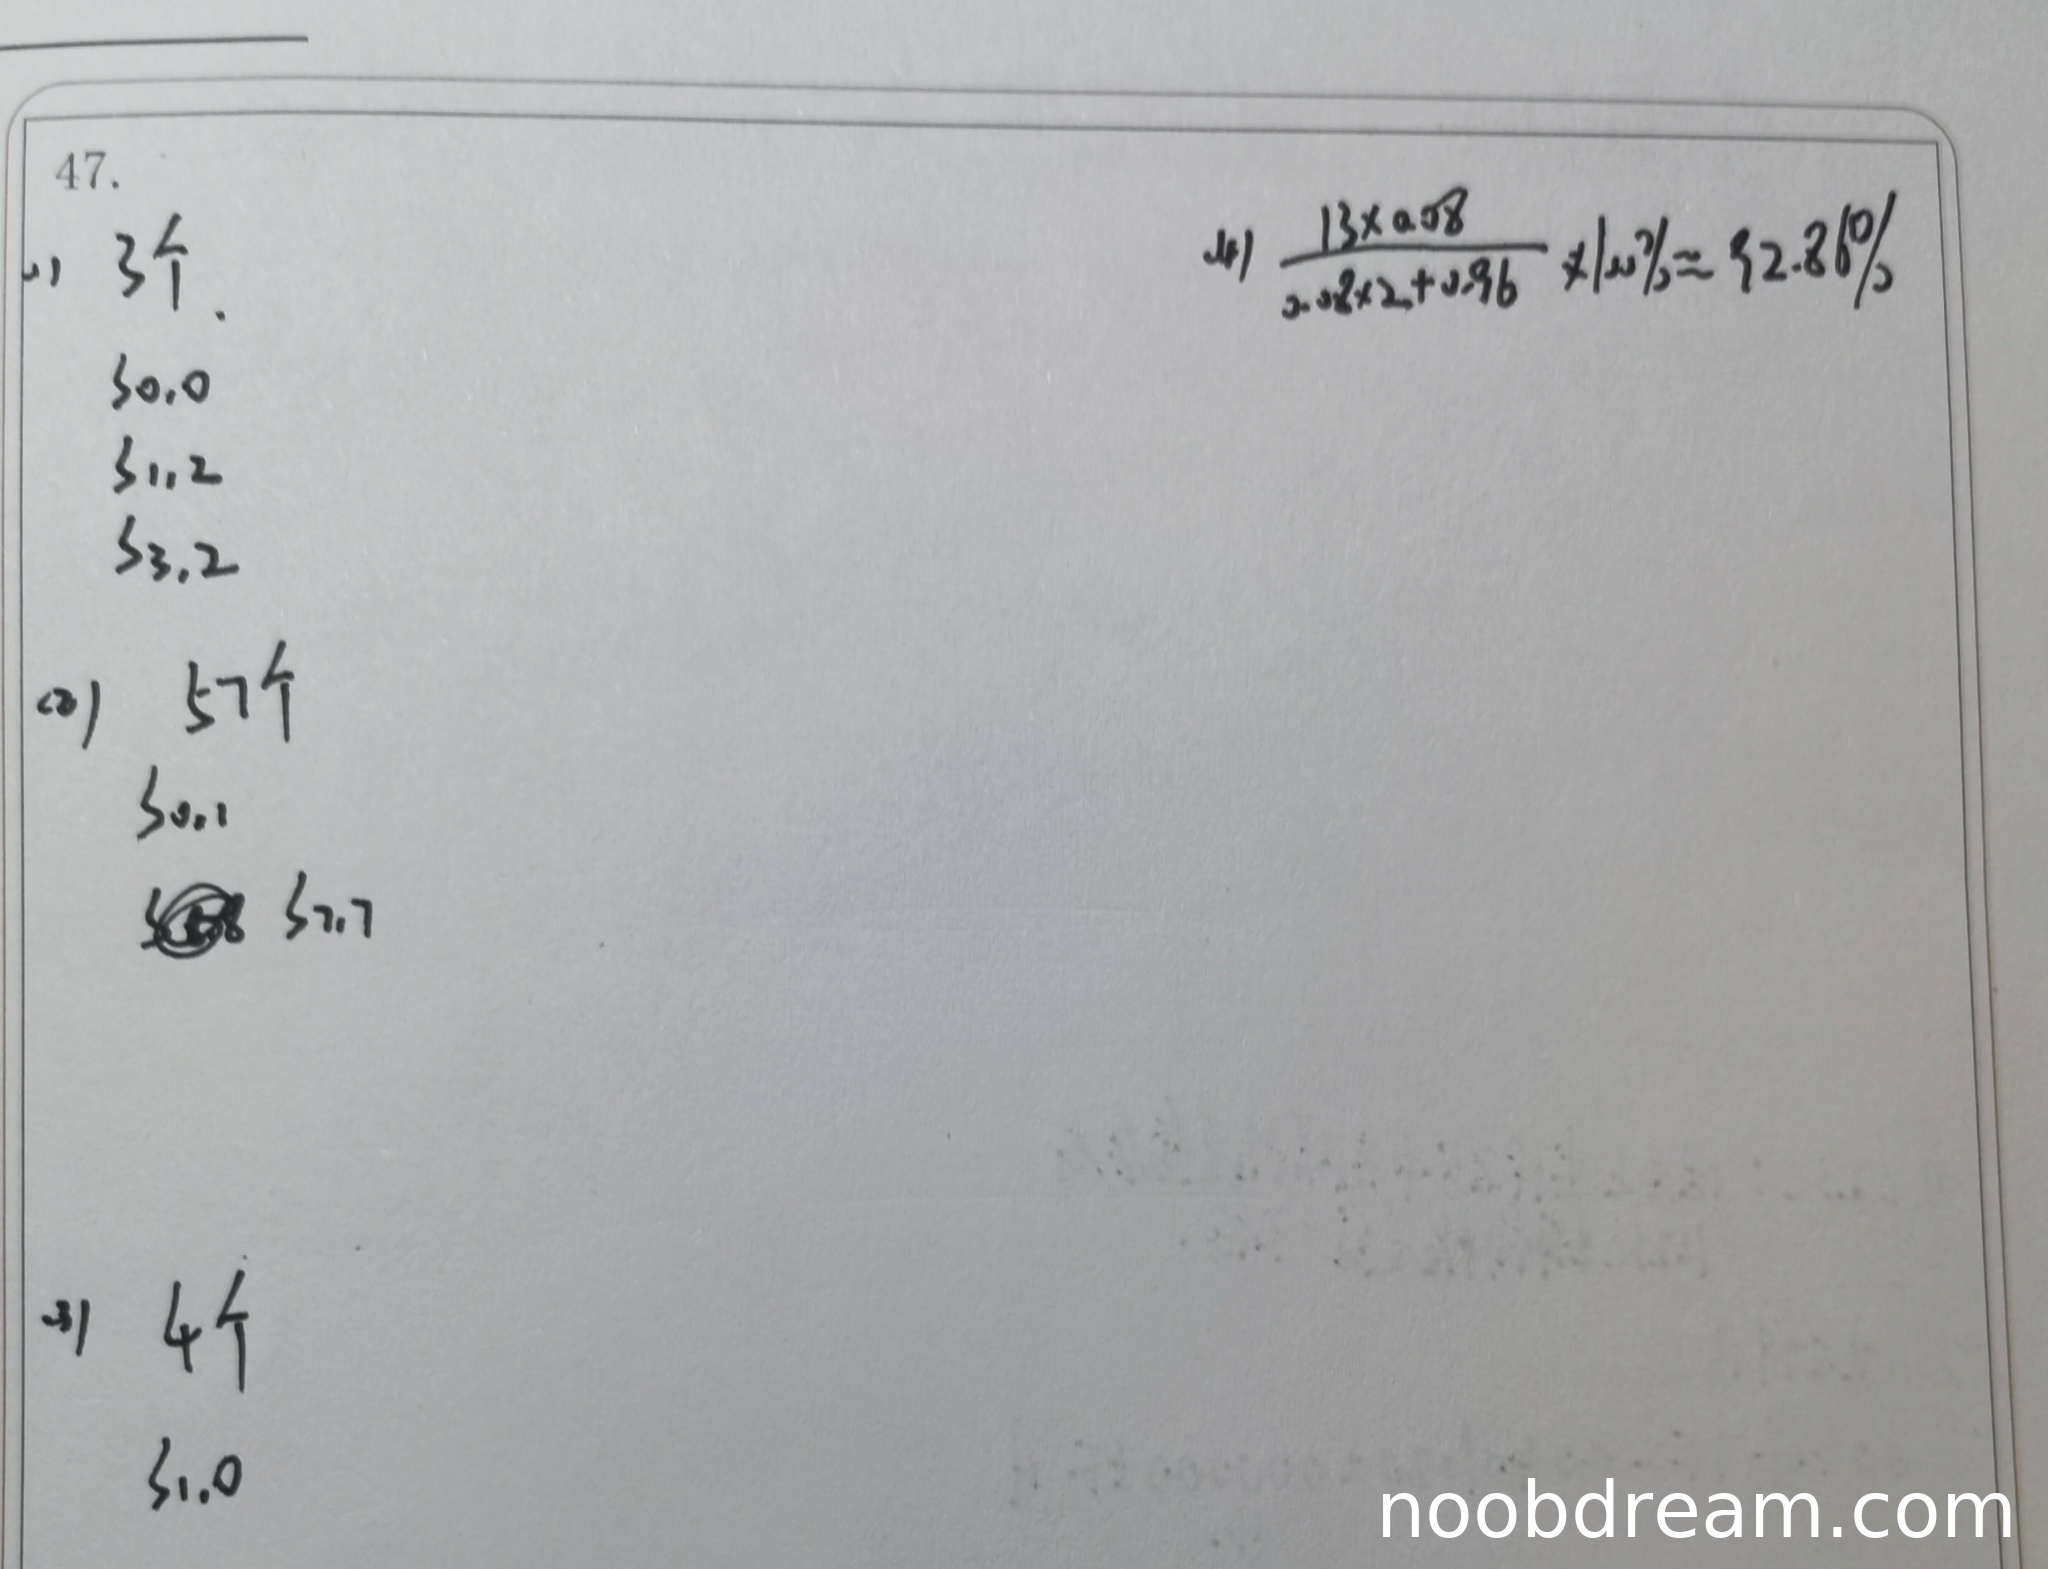 47.
(1) 3个.
S0.0
S1.2
S3.2
(2) 57个
S0.1
S7.7
(3) 4个
S1.0
(4) 13×0.08 / 0.08×2+0.96 ×100% ≈ 92.86%
noobdream.com